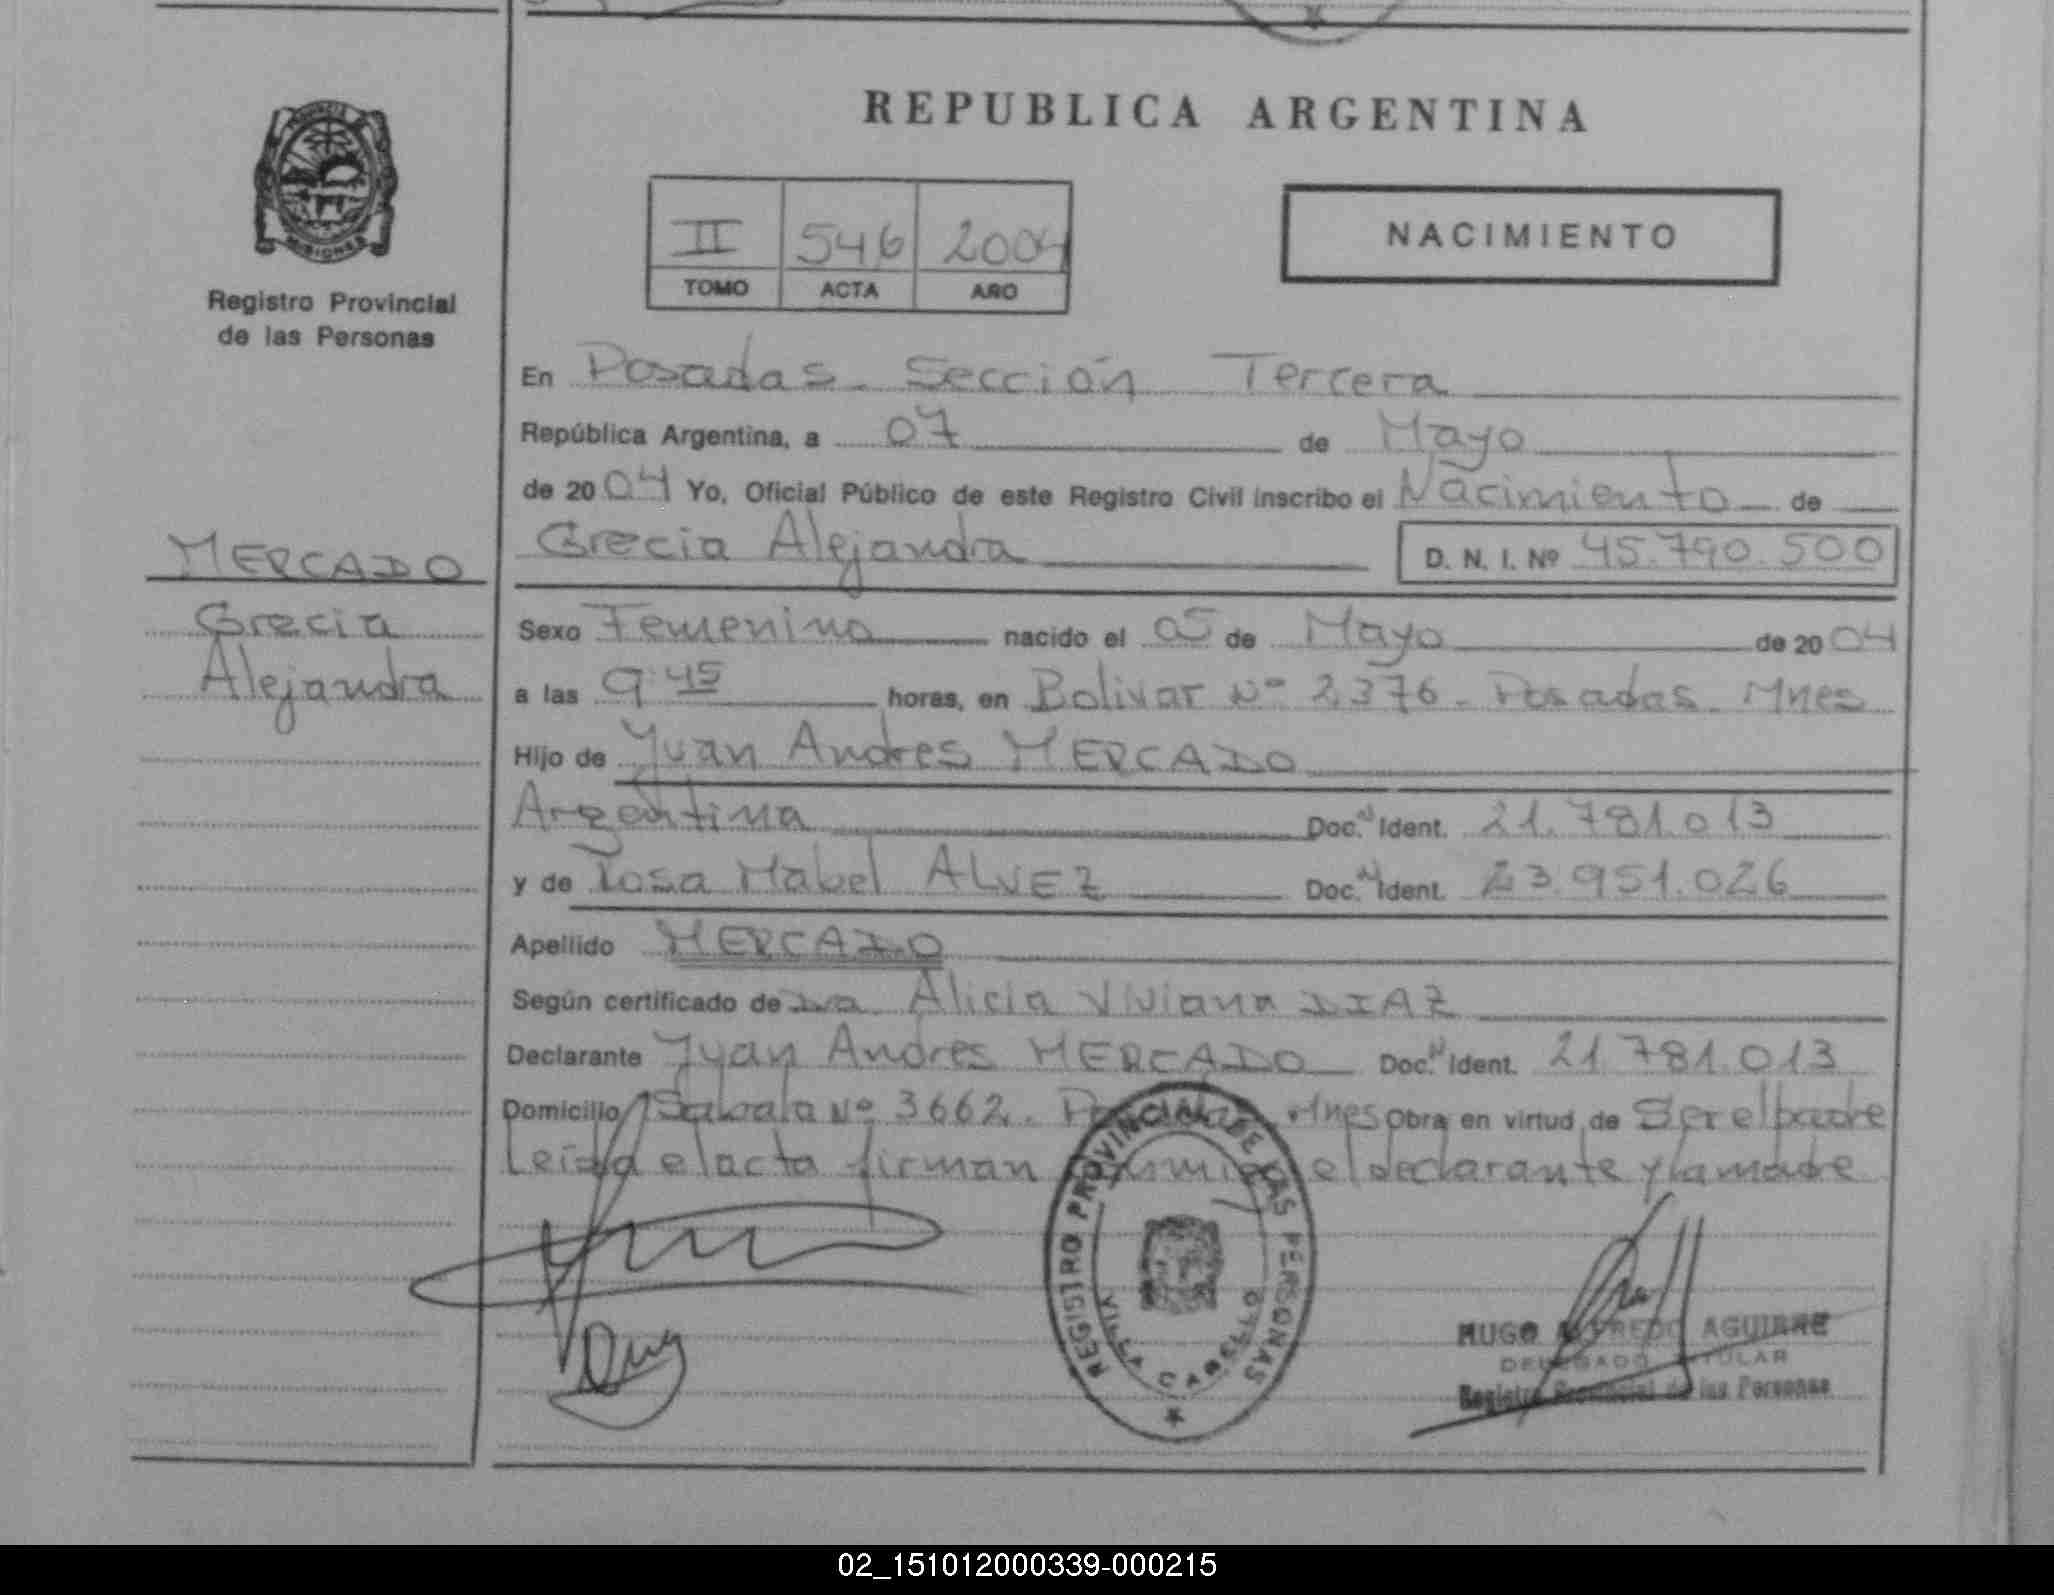 REPUBLICA ARGENTINA
PROVINCIA
MISIONES
Registro Provincial
de las Personas
II 546 2004
TOMO ACTA AÑO
NACIMIENTO
En Posadas. Sección Tercera
República Argentina, a 07 de Mayo
de 2004 Yo, Oficial Público de este Registro Civil inscribo el Nacimiento de
Grecia Alejandra D. N. I. Nº 45.790.500
MERCADO
Grecia
Alejandra
Sexo Femenino nacido el 05 de Mayo de 2004
a las 9:45 horas, en Bolivar Nº 2376. Posadas. Mnes
Hijo de Juan Andres MERCADO
Argentina Doc. N Ident. 21.781.013
y de Rosa Mabel ALVEZ Doc. N Ident. 23.951.026
Apellido MERCADO
Según certificado de Dra. Alicia Viviana DIAZ
Declarante Juan Andres MERCADO Doc. N Ident. 21.781.013
Domicilio Nº 3662. Posadas. Mnes Obra en virtud de Ser el padre
Leída el acta firman conmigo el declarante y la madre
REGISTRO PROVINCIAL DE LAS PERSONAS
VILLA CABELLO
HUGO ALFREDO AGUIRRE
DELEGADO TITULAR
Registro Provincial de las Personas
02_151012000339-000215